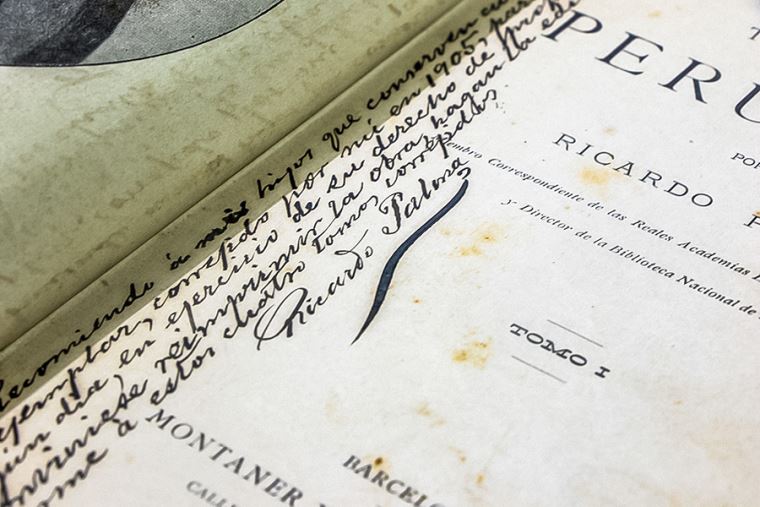 Recomiendo á mis hijos que conserven cui
ejemplar, corregido por mí en 1905, para
gún día en ejercicio de su derecho de prop
nviniese reimprimir la obra, hagan la edi
me á estos cuatro tomos corregidos
Ricardo Palma
T
PERU
PO
RICARDO P
embro Correspondiente de las Reales Academias E
y Director de la Biblioteca Nacional de
TOMO I
BARCELO
MONTANER
CALL